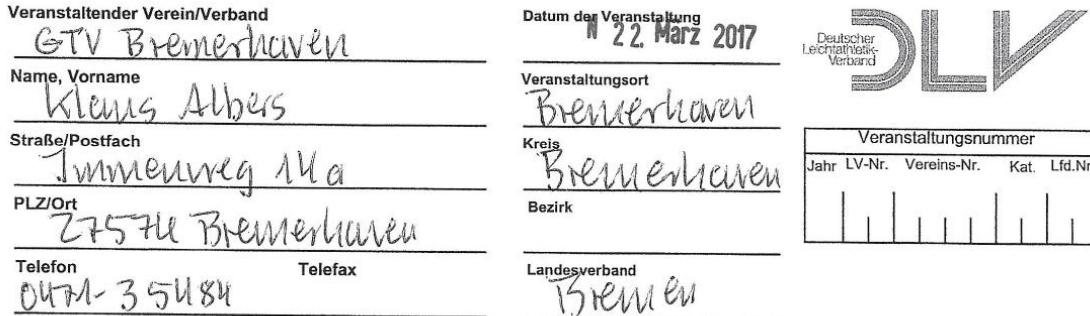 Veranstaltender Verein/Verband
GTV Bremerhaven
Name, Vorname
Klaus Albers
Straße/Postfach
Immenweg 14a
PLZ/Ort
27574 Bremerhaven
Telefon Telefax
0471-35484
Datum der Veranstaltung
22. März 2017
Veranstaltungsort
Bremerhaven
Kreis
Bremerhaven
Bezirk
Landesverband
Bremen
Deutscher
Leichtathletik-
Verband
DLV
Veranstaltungsnummer
Jahr LV-Nr. Vereins-Nr. Kat. Lfd.Nr